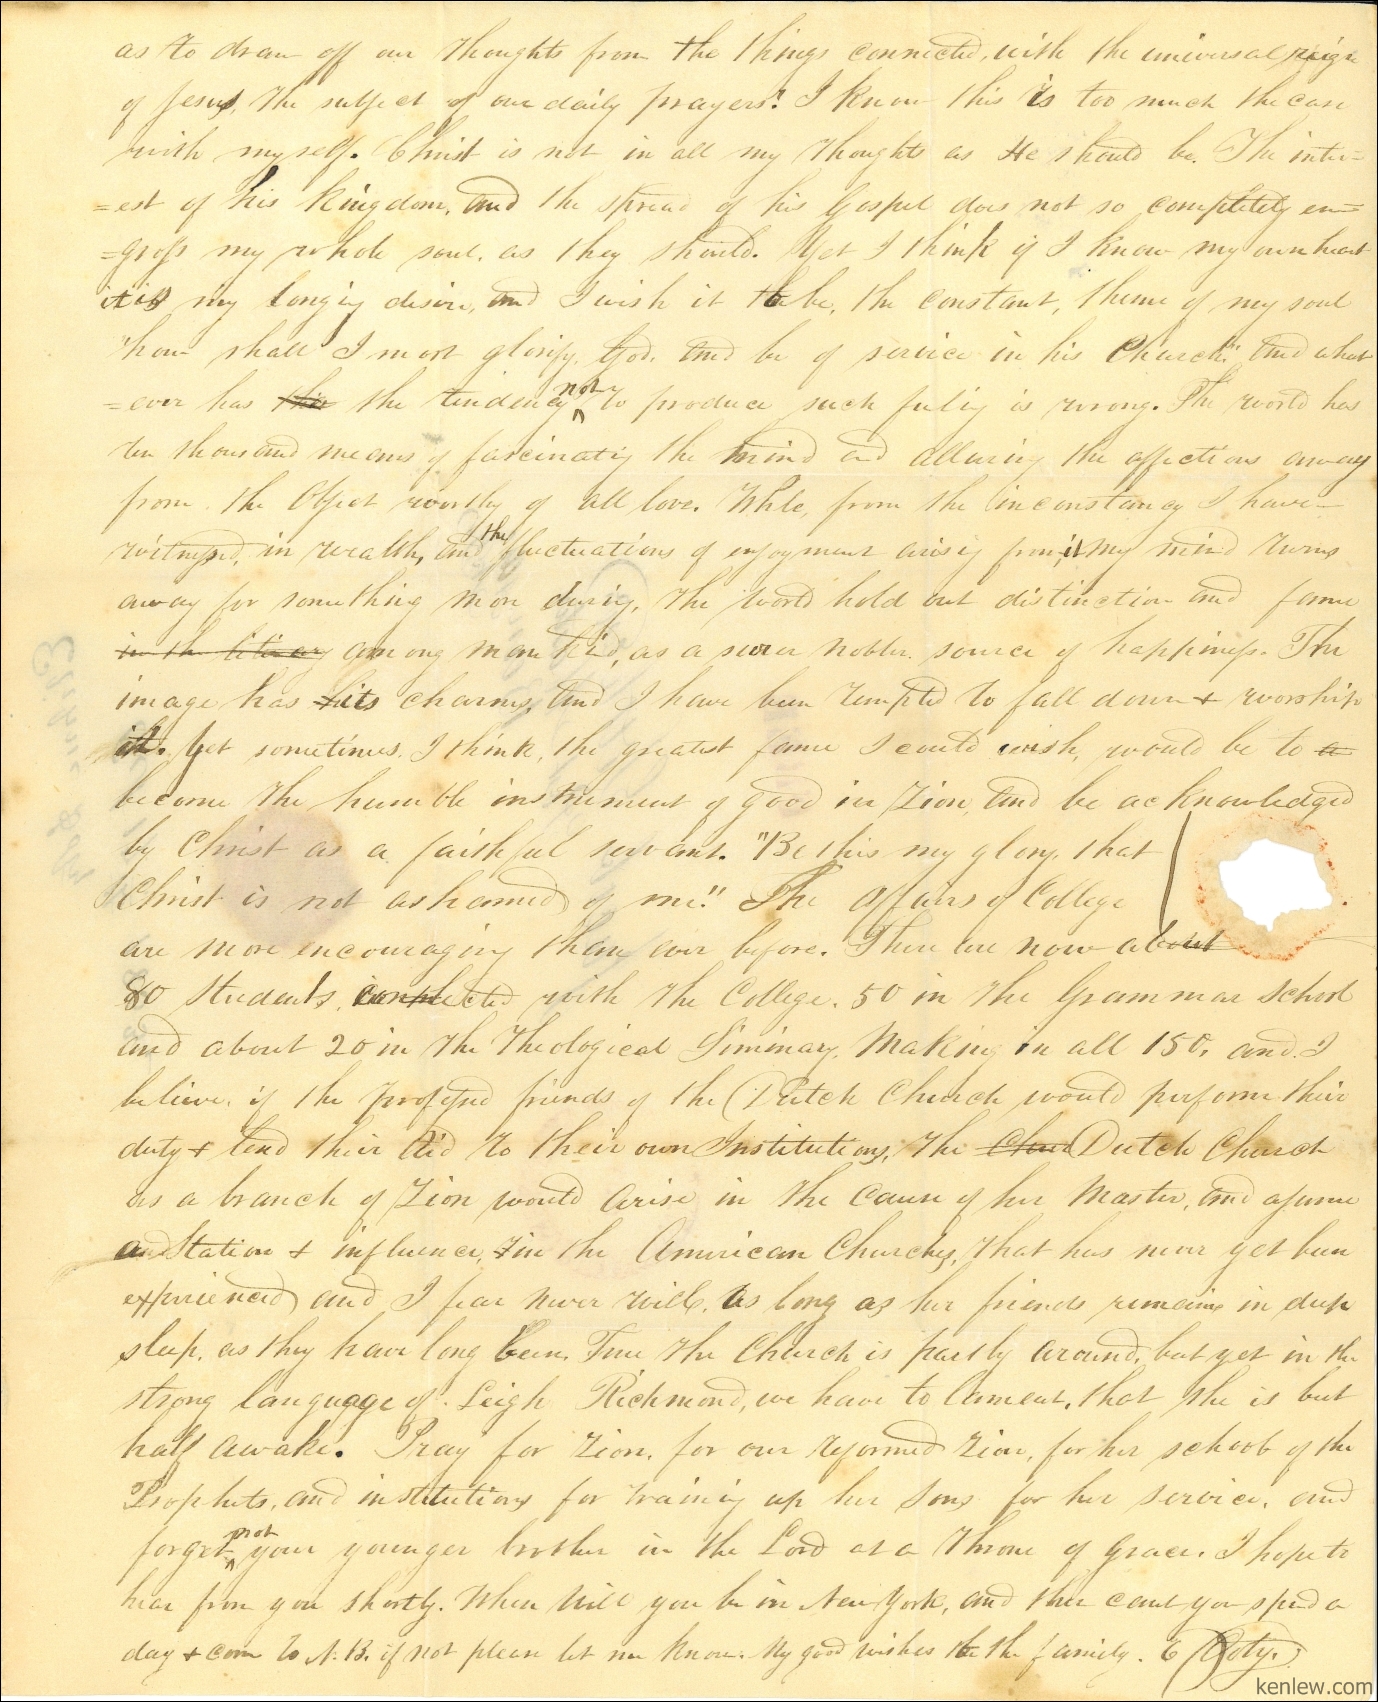 as to draw off our thoughts from the things connected, with the universal reign
of Jesus, the subject of our daily prayers! I know this is too much the case
with myself. Christ is not in all my thoughts as He should be. The inter=
=est of his kingdom, and the spread of his Gospel does not so completely en=
=gross my whole soul, as they should. Yet I think if I know my own heart
it is my longing desire, and I wish it to be, the constant, theme of my soul
"how shall I most glorify God and be of service in his Church." And what
=ever has the the tendency not to produce such feelig is wrong. The world has
ten thousand means of fascinatig the mind and alluring the affections away
from the Object worthy of all love. While, from the inconstancy I have
witnessed, in wealth, and the fluctuations of enjoyment arisig from it my mind turns
away for something more during, the world hold out distinction and fame
in the literary among mankind, as a nobler source of happiness. The
image has its charms, and I have been tempted to fall down & worship
it. Yet sometimes, I think, the greatest fame I could wish, would be to a
become the humble instrument of good in Zion, and be acknowledged
by Christ as a faithful servant. "Be this my glory, that
Christ is not ashamed of me!" The Affairs of College
are more encouraging than ever before. There are now about
80 Students, connected with the College, 50 in the Grammar School
and about 20 in the Theological Siminary. Making in all 150, and I
believe, if the professed friends of the Dutch Church would perform their
duty & lend their Aid to their own Institutions, the Chur Dutch Church
as a branch of Zion would arise in the cause of her Master, and assume
an Station & influence, in the American Churches, that has never yet been
experienced and I fear never will, as long as her friends remains in deep
sleep, as they have long been. True the Church is partly around, but yet in the
strong language of Leigh Richmond, we have to lament, that she is but
half awake. Pray for Zion, for our reformed Zion, for her schools of the
Prophets, and institutions for trainig up her Sons for her service, and
forget not your younger brother in the Lord at a throne of Grace. I hope to
hear from you shortly. When will you be in New York, and then cant you spend a
day & come to N.B. if not please let me know. My good wishes to the family. C Doty.
kenlew.com